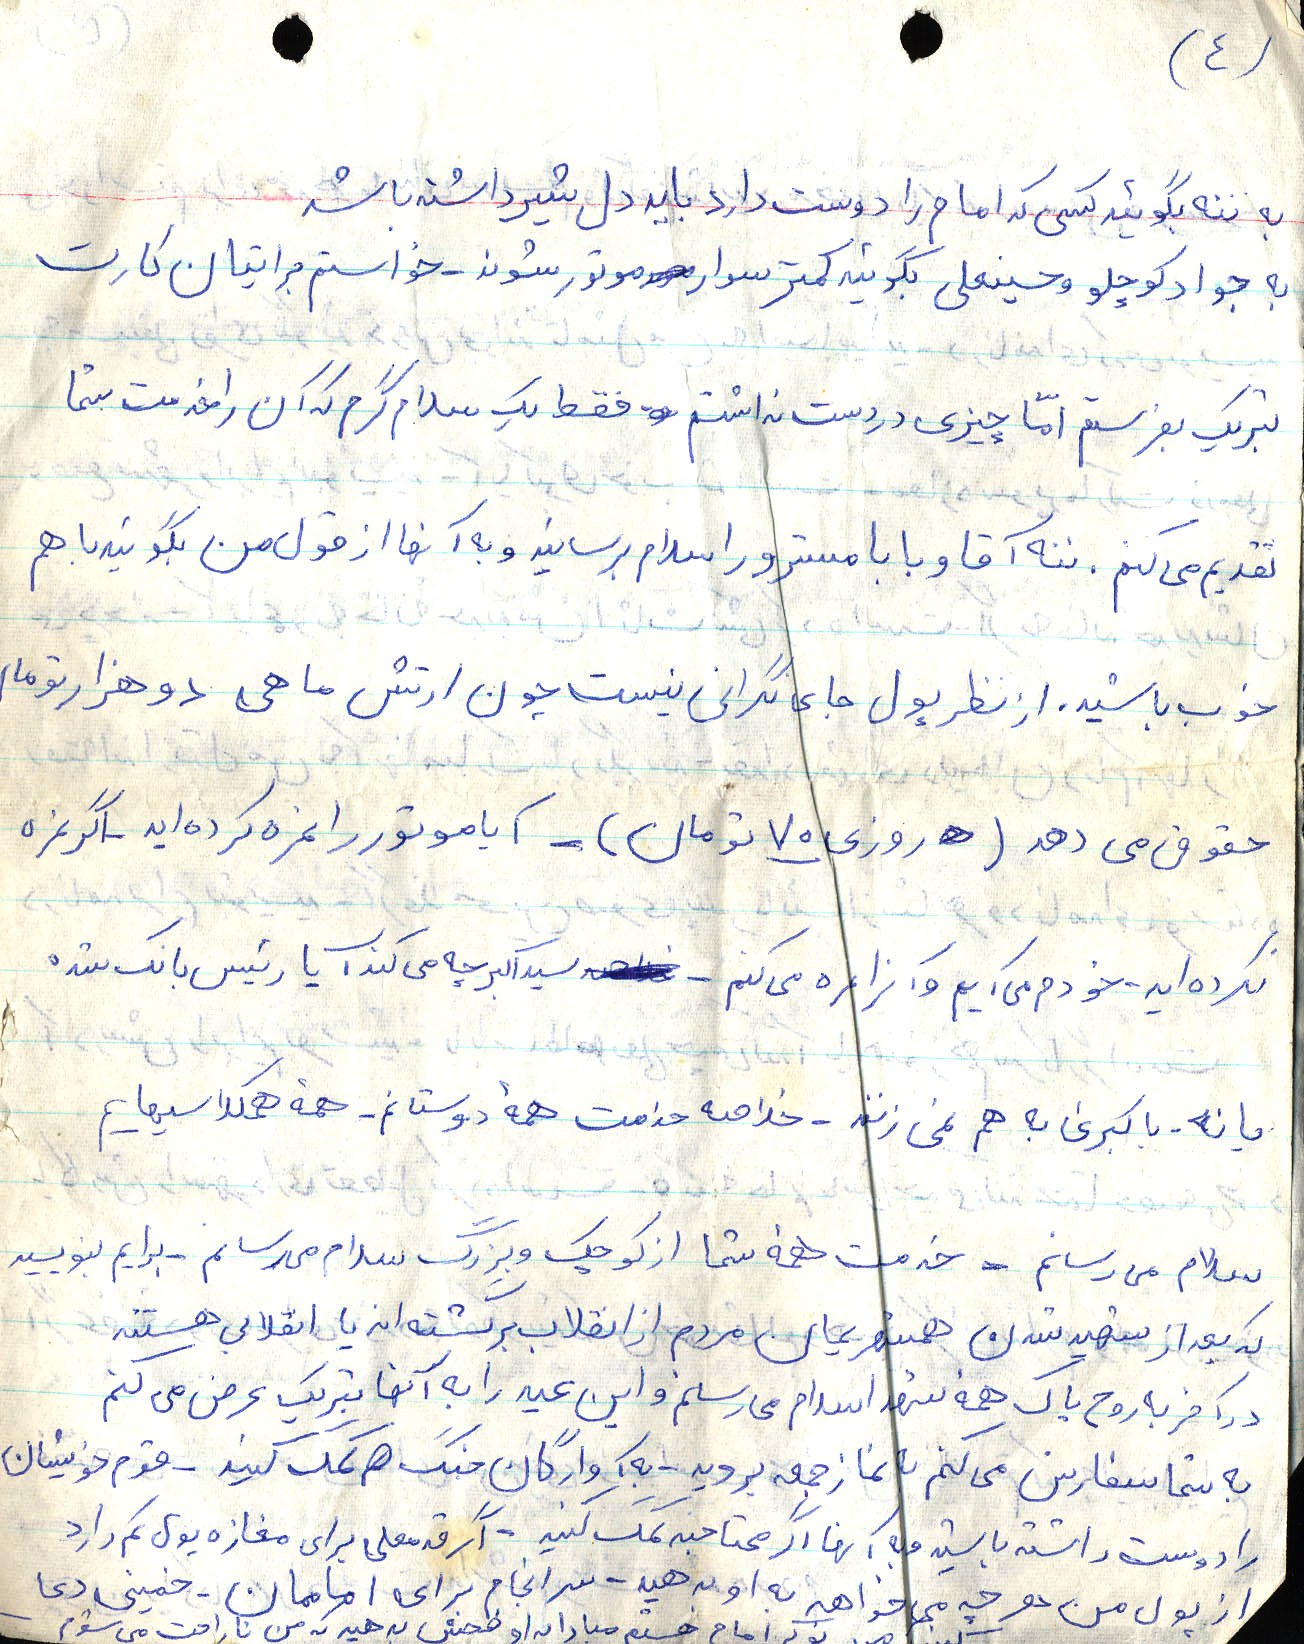 (٤)
به ننه بگوئید کسی که امام را دوست دارد باید دل شیر داشته باشد
به جواد کوچلو و حسینعلی بگوئید کمتر سوار موتور شوند - خواستم برایتان کارت
تبریک بفرستم امّا چیزی در دست نداشتم فقط یک سلام گرم که آن را خدمت شما
تقدیم می کنم . ننه آقا و بابا مسترور را سلام برسانید و به آنها از قول من بگوئید با هم
خوب باشید . از نظر پول جای نگرانی نیست چون ارتش ماهی دو هزار تومان
حقوق می دهد ( روزی ۷۰ تومان ) - آیا موتور را نمره کرده اید - اگر نمره
نکرده اید - خودم می آیم و آنرا نمره می کنم - سید اکبر چه می کند آیا رئیس بانک شده
یا نه - با کبری به هم نمی زنند - خلاصه خدمت همهٔ دوستانم - همهٔ همکلاسیهایم
سلام می رسانم - خدمت همهٔ شما از کوچک و بزرگ سلام می رسانم - برایم بنویسید
که بعد از شهید شدن همشهریمان مردم از انقلاب برگشته اند یا انقلابی هستند
در آخر به روح پاک همهٔ شهدا سلام می رسانم و این عید را به آنها تبریک عرض می کنم
به شما سفارش می کنم به نماز جمعه بروید - به آوارگان جنگ هم کمک کنید - قوم خویشان
را دوست داشته باشید و به آنها اگر محتاجند کمک کنید - اگر قدمعلی برای مغازه پول کم دارد
از پول من هر چه می خواهد به او بدهید - سر انجام برای اماممان - خمینی دعا
امام هستم مبادا به او فحش بدهید که من ناراحت می شوم